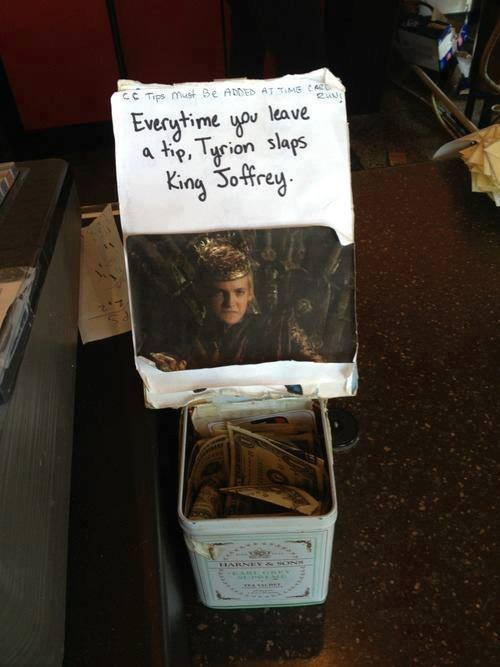 CC Tips Must Be ADDED AT TIME CARD
RUN!
Everytime you leave
a tip, Tyrion slaps
King Joffrey.
HARNEY & SONS
EARL GREY
SUPREME